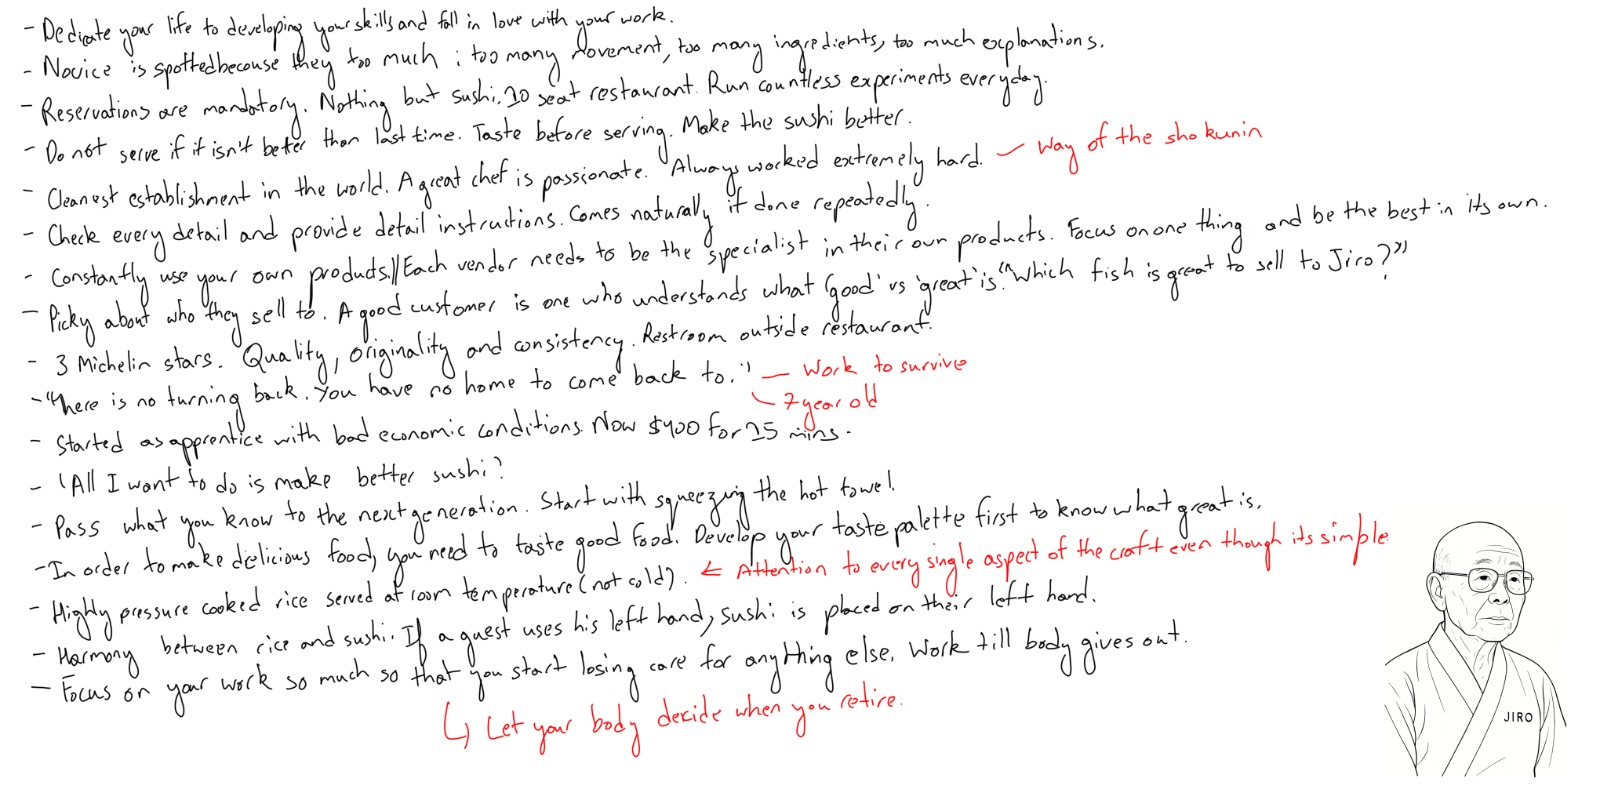 - Dedicate your life to developing your skills and fall in love with your work.
- Novice is spotted because they too much ; too many movement, too many ingredients, too much explanations.
- Reservations are mandatory. Nothing but sushi. 10 seat restaurant. Run countless experiments everyday.
- Do not serve if it isn't better than last time. Taste before serving. Make the sushi better.
- Cleanest establishment in the world. A great chef is passionate. Always worked extremely hard. — Way of the shokunin
- Check every detail and provide detail instructions. Comes naturally if done repeatedly.
- Constantly use your own products.//Each vendor needs to be the specialist in their own products. Focus on one thing and be the best in its own.
- Picky about who they sell to. A good customer is one who understands what 'good' vs 'great' is. "Which fish is great to sell to Jiro?"
- 3 Michelin stars. Quality, originality and consistency. Restroom outside restaurant.
- "There is no turning back. You have no home to come back to." — Work to survive
7 year old
- Started as apprentice with bad economic conditions. Now $400 for 15 mins.
- 'All I want to do is make better sushi'
- Pass what you know to the next generation. Start with squeezing the hot towel.
- In order to make delicious food, you need to taste good food. Develop your taste palette first to know what great is.
- Highly pressure cooked rice served at room temperature (not cold). ← Attention to every single aspect of the craft even though its simple
- Harmony between rice and sushi. If a guest uses his left hand, sushi is placed on their left hand.
- Focus on your work so much so that you start losing care for anything else. Work till body gives out.
↳ Let your body decide when you retire.
JIRO